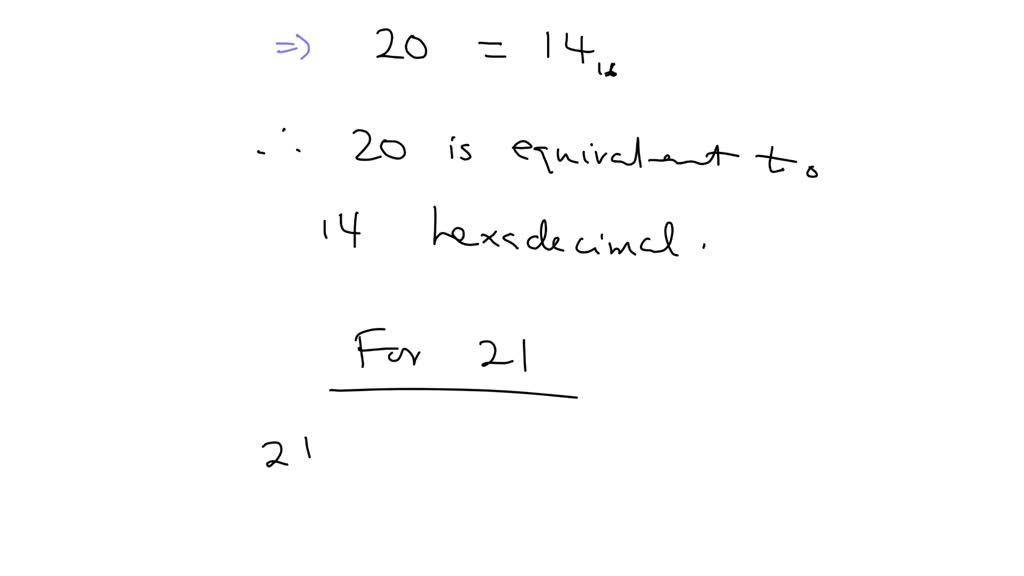 ⇒ 20 = 14₁₆
∴ 20 is equivalent to
14 hexadecimal.
For 21
21